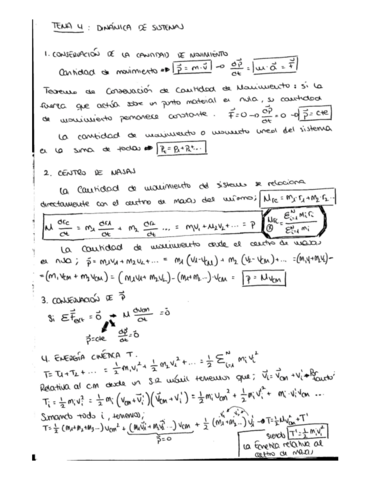 TEMA 4: DINÁMICA DE SISTEMAS
1. CONSERVACIÓN DE LA CANTIDAD DE MOVIMIENTO
Cantidad de movimiento → p⃗ = m·v⃗ → dp⃗/dt = m·a⃗ = F⃗
Teorema de Conservación de Cantidad de Movimiento; si la
fuerza que actúa sobre un punto material es nula, su cantidad
de movimiento permanece constante. F⃗=0 → dp⃗/dt = 0 → p⃗ = cte
La cantidad de movimiento o momento lineal del sistema
es la suma de todas → = P₁+P₂+...
2. CENTRO DE MASAS
La Cantidad de movimiento del sistema se relaciona
directamente con el centro de masas del mismo; M rc = m₁·r₁+m₂·r₂...
M drc/dt = m₁ dr₁/dt + m₂ dr₂/dt ... = m₁v₁ + m₂v₂ + ... = p
La Cantidad de movimiento desde el centro de masas
es nula; p⃗ = m₁v₁ + m₂v₂ + ... = m₁(v₁-vCM) + m₂(v₂-vCM) + ... =
= p⃗ = M vCM
3. CONSERVACIÓN DE p⃗
Si ΣF⃗ext = 0⃗ → M dvCM/dt = 0⃗
p⃗=cte a⃗CM=0
4. ENERGÍA CINÉTICA T.
T = T₁+T₂+... = ½ m₁v₁² + ½ m₂v₂² + ... = ½ Σ mᵢvᵢ²
Relativa al CM desde un S.R. móvil tenemos que; v⃗ᵢ = v⃗CM + v⃗ᵢ'
Tᵢ = ½ mᵢvᵢ² = ½ mᵢ (v⃗CM+v⃗ᵢ')(v⃗CM+v⃗ᵢ') = ½ mᵢvCM² + ½ mᵢvᵢ'² + mᵢ·vᵢ'·vCM ...
Sumando todo i, tenemos;
T = ½ (m₁+m₂+m₃...)vCM² + → T = ½ M vCM² + T'
p⃗=0 siendo T' = ½ mᵢvᵢ'²
la Energía relativa al
centro de masas